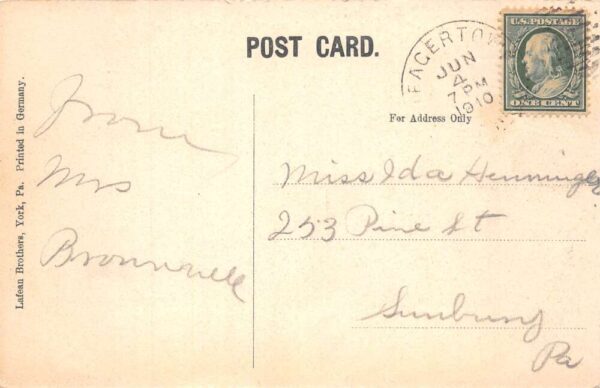 POST CARD.
For Address Only
EAGERTO
JUN
4
7 PM
1910
U.S. POSTAGE
ONE CENT
Lafean Brothers, York, Pa. Printed in Germany.
From
Mrs
Miss Ida
253 Pine St
Sunbury
Pa